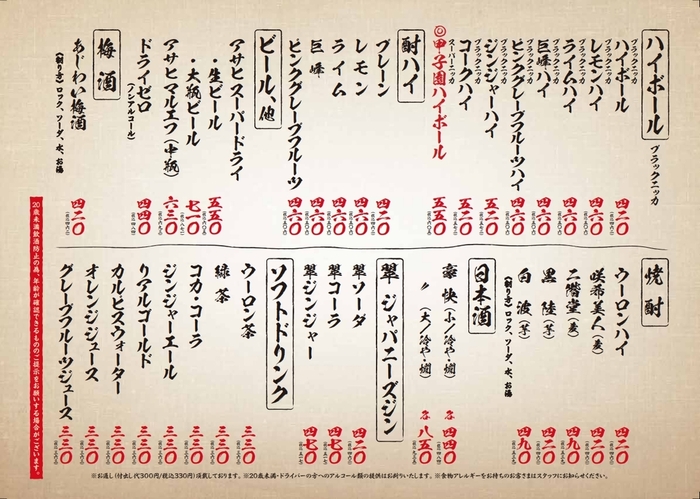 ハイボール
ブラックニッカ
ブラックニッカ
ハイボール 四二〇
ブラックニッカ
レモンハイ 四六〇
ブラックニッカ
ライムハイ 四六〇
ブラックニッカ
巨峰ハイ 四六〇
ブラックニッカ
ピンクグレープフルーツハイ 四六〇
ブラックニッカ
ジンジャーハイ 五二〇
ブラックニッカ
コークハイ 五二〇
スーパーニッカ
◎甲子園ハイボール 五五〇
酎ハイ
プレーン 四二〇
レモン 四六〇
ライム 四六〇
巨峰 四六〇
ピンクグレープフルーツ 四六〇
ビール、他
アサヒスーパードライ
・生ビール 五五〇
・大瓶ビール 七一〇
アサヒマルエフ(中瓶) 六三〇
ドライゼロ 四四〇
(ノンアルコール)
梅酒
あじわい梅酒 四二〇
(割り方)ロック、ソーダ、水、お湯
焼酎
ウーロンハイ 四二〇
咲希美人(麦) 四二〇
二階堂(麦) 四九〇
黒陸(芋) 四二〇
白波(芋) 四九〇
(割り方)ロック、ソーダ、水、お湯
日本酒
豪快(小/冷や・燗) 各四四〇
〃(大/冷や・燗) 各八五〇
翠 ジャパニーズジン
翠ソーダ 四二〇
翠コーラ 四七〇
翠ジンジャー 四七〇
ソフトドリンク
ウーロン茶 三三〇
緑茶 三三〇
コカ・コーラ 三三〇
ジンジャーエール 三三〇
リアルゴールド 三三〇
カルピスウォーター 三三〇
オレンジジュース 三三〇
グレープフルーツジュース 三三〇
20歳未満飲酒防止の為、年齢が確認できるもののご提示をお願いする場合がございます。
※お通し(付出し代300円/税込330円)頂戴しております。※20歳未満・ドライバーの方へのアルコール類の提供はお断りいたします。※食物アレルギーをお持ちのお客さまはスタッフにお知らせください。